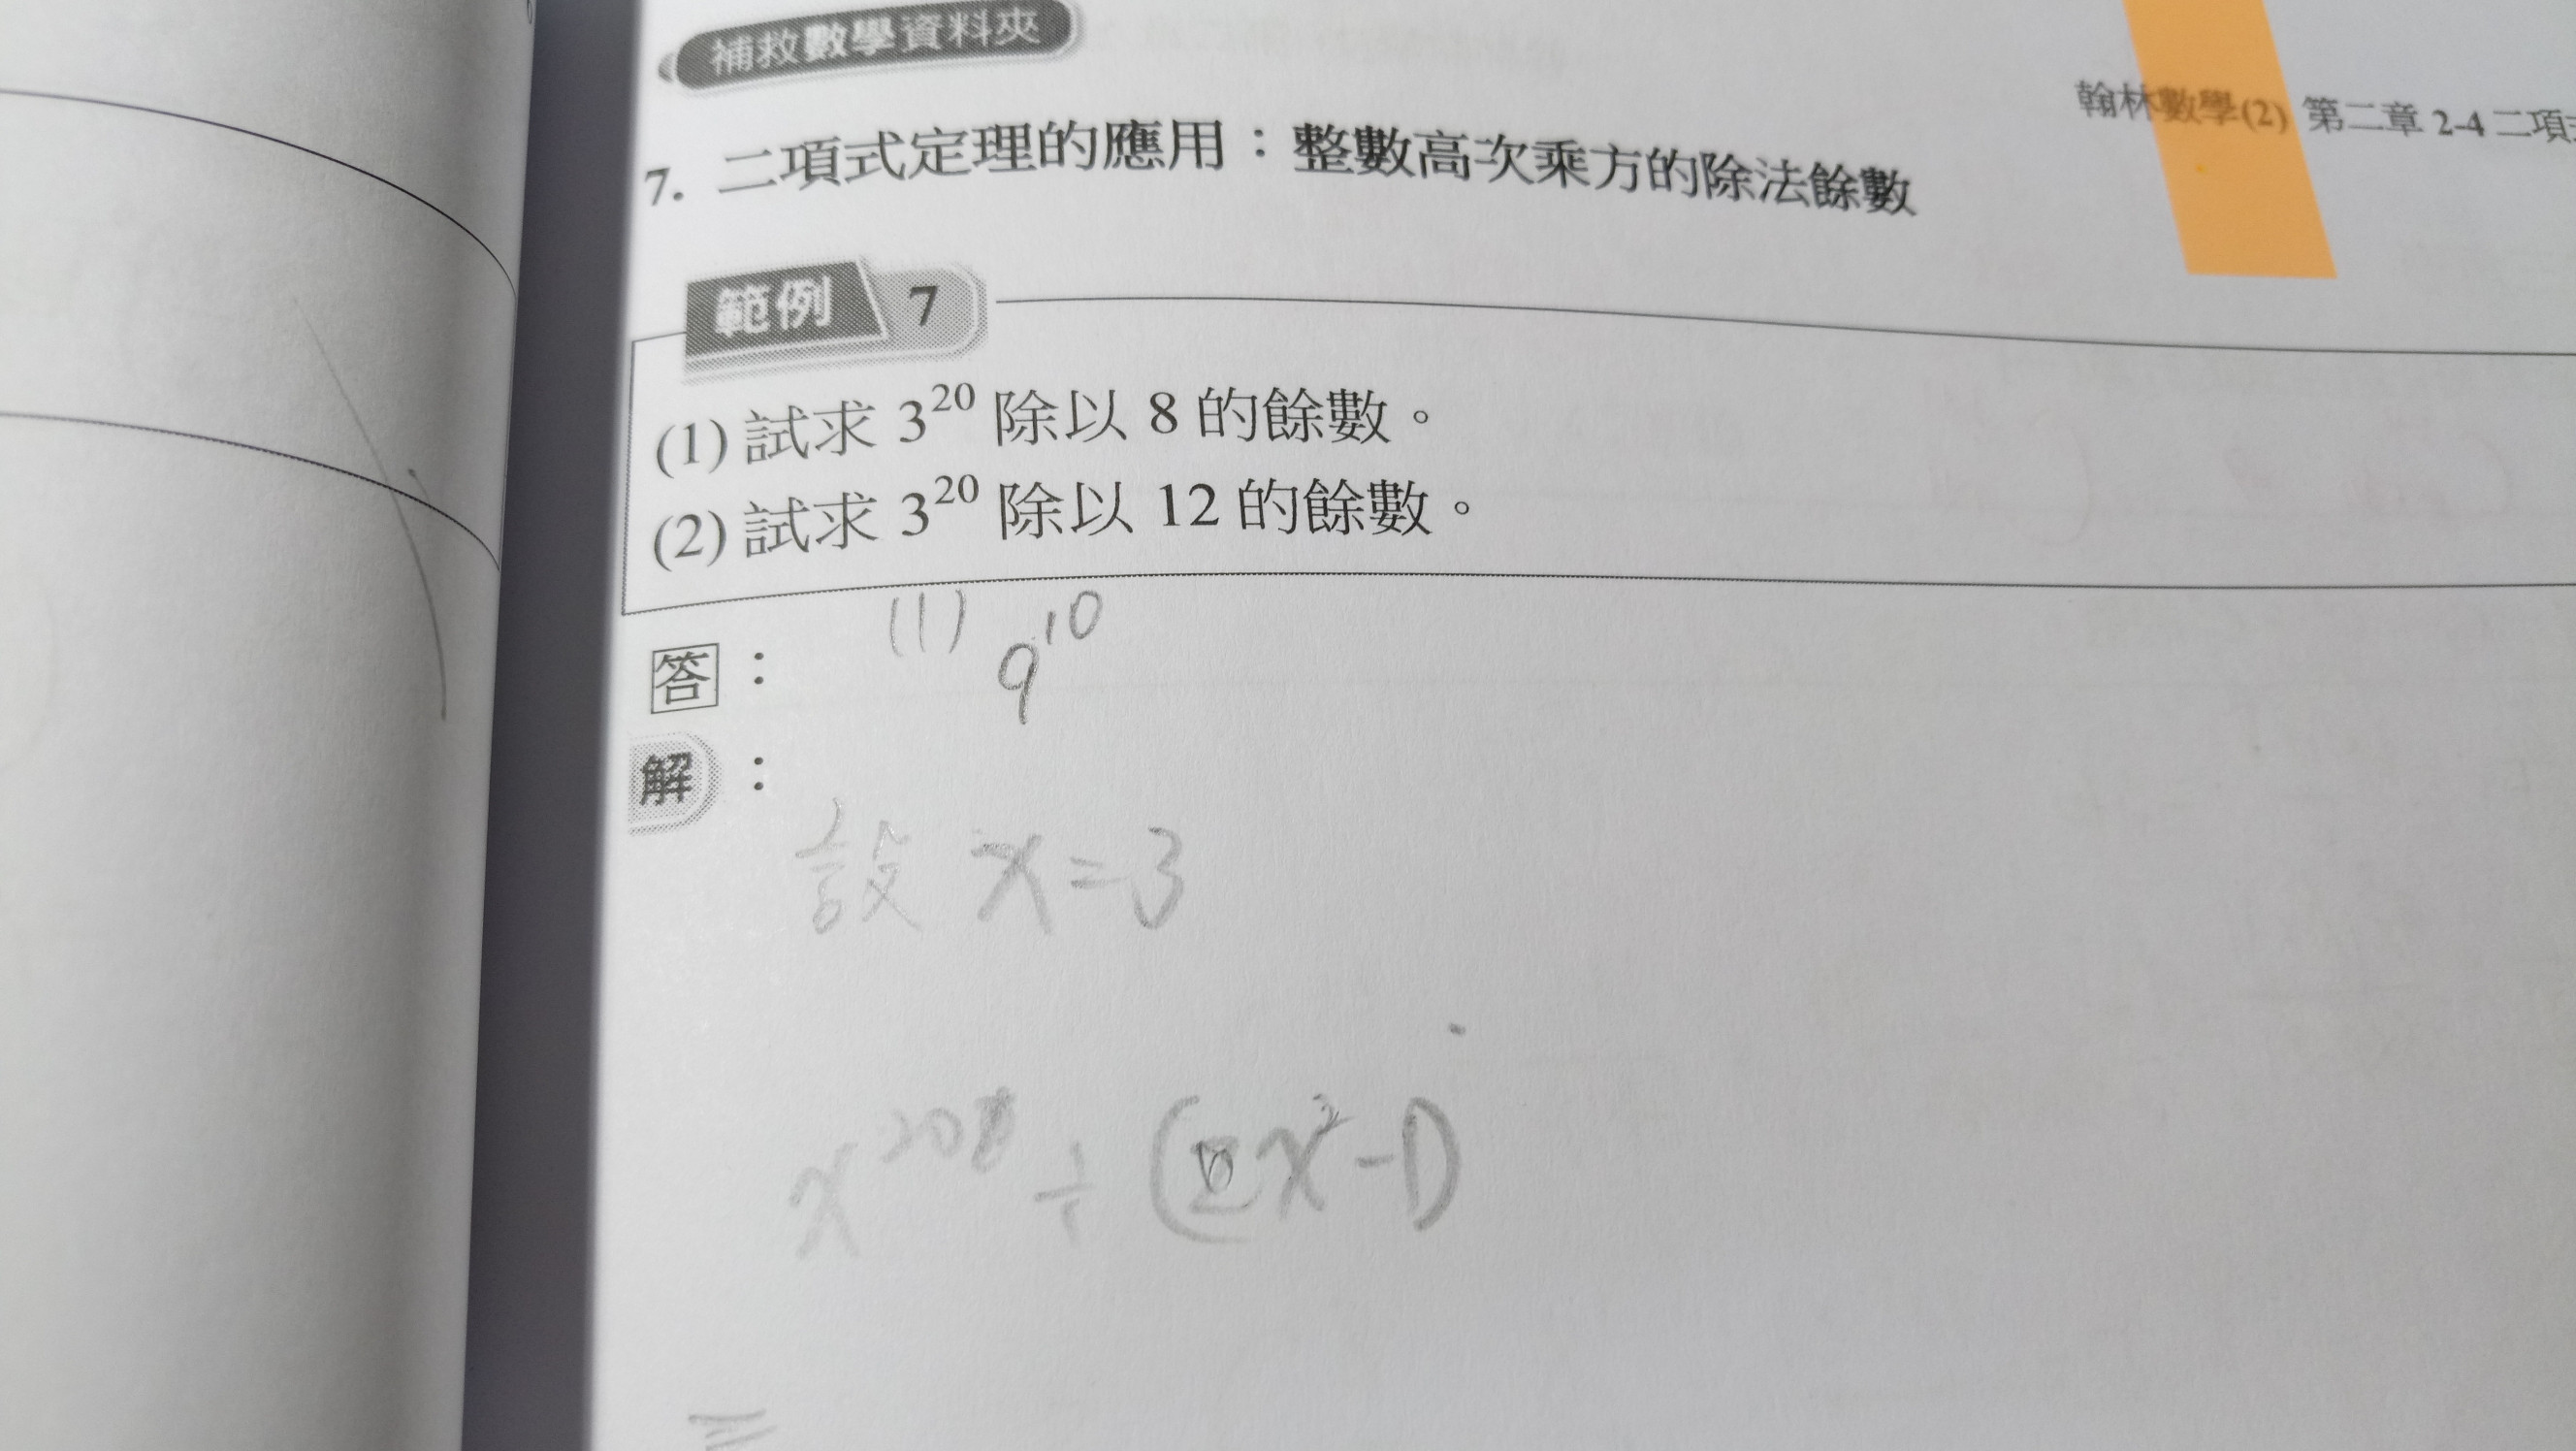 補救數學資料夾
翰林數學(2) 第二章 2-4 二項
7. 二項式定理的應用：整數高次乘方的除法餘數
範例 7
(1) 試求 3²⁰ 除以 8 的餘數。
(2) 試求 3²⁰ 除以 12 的餘數。
答： (1) 9¹⁰
解：
設 x=3
x²⁰ ÷ (x²-1)